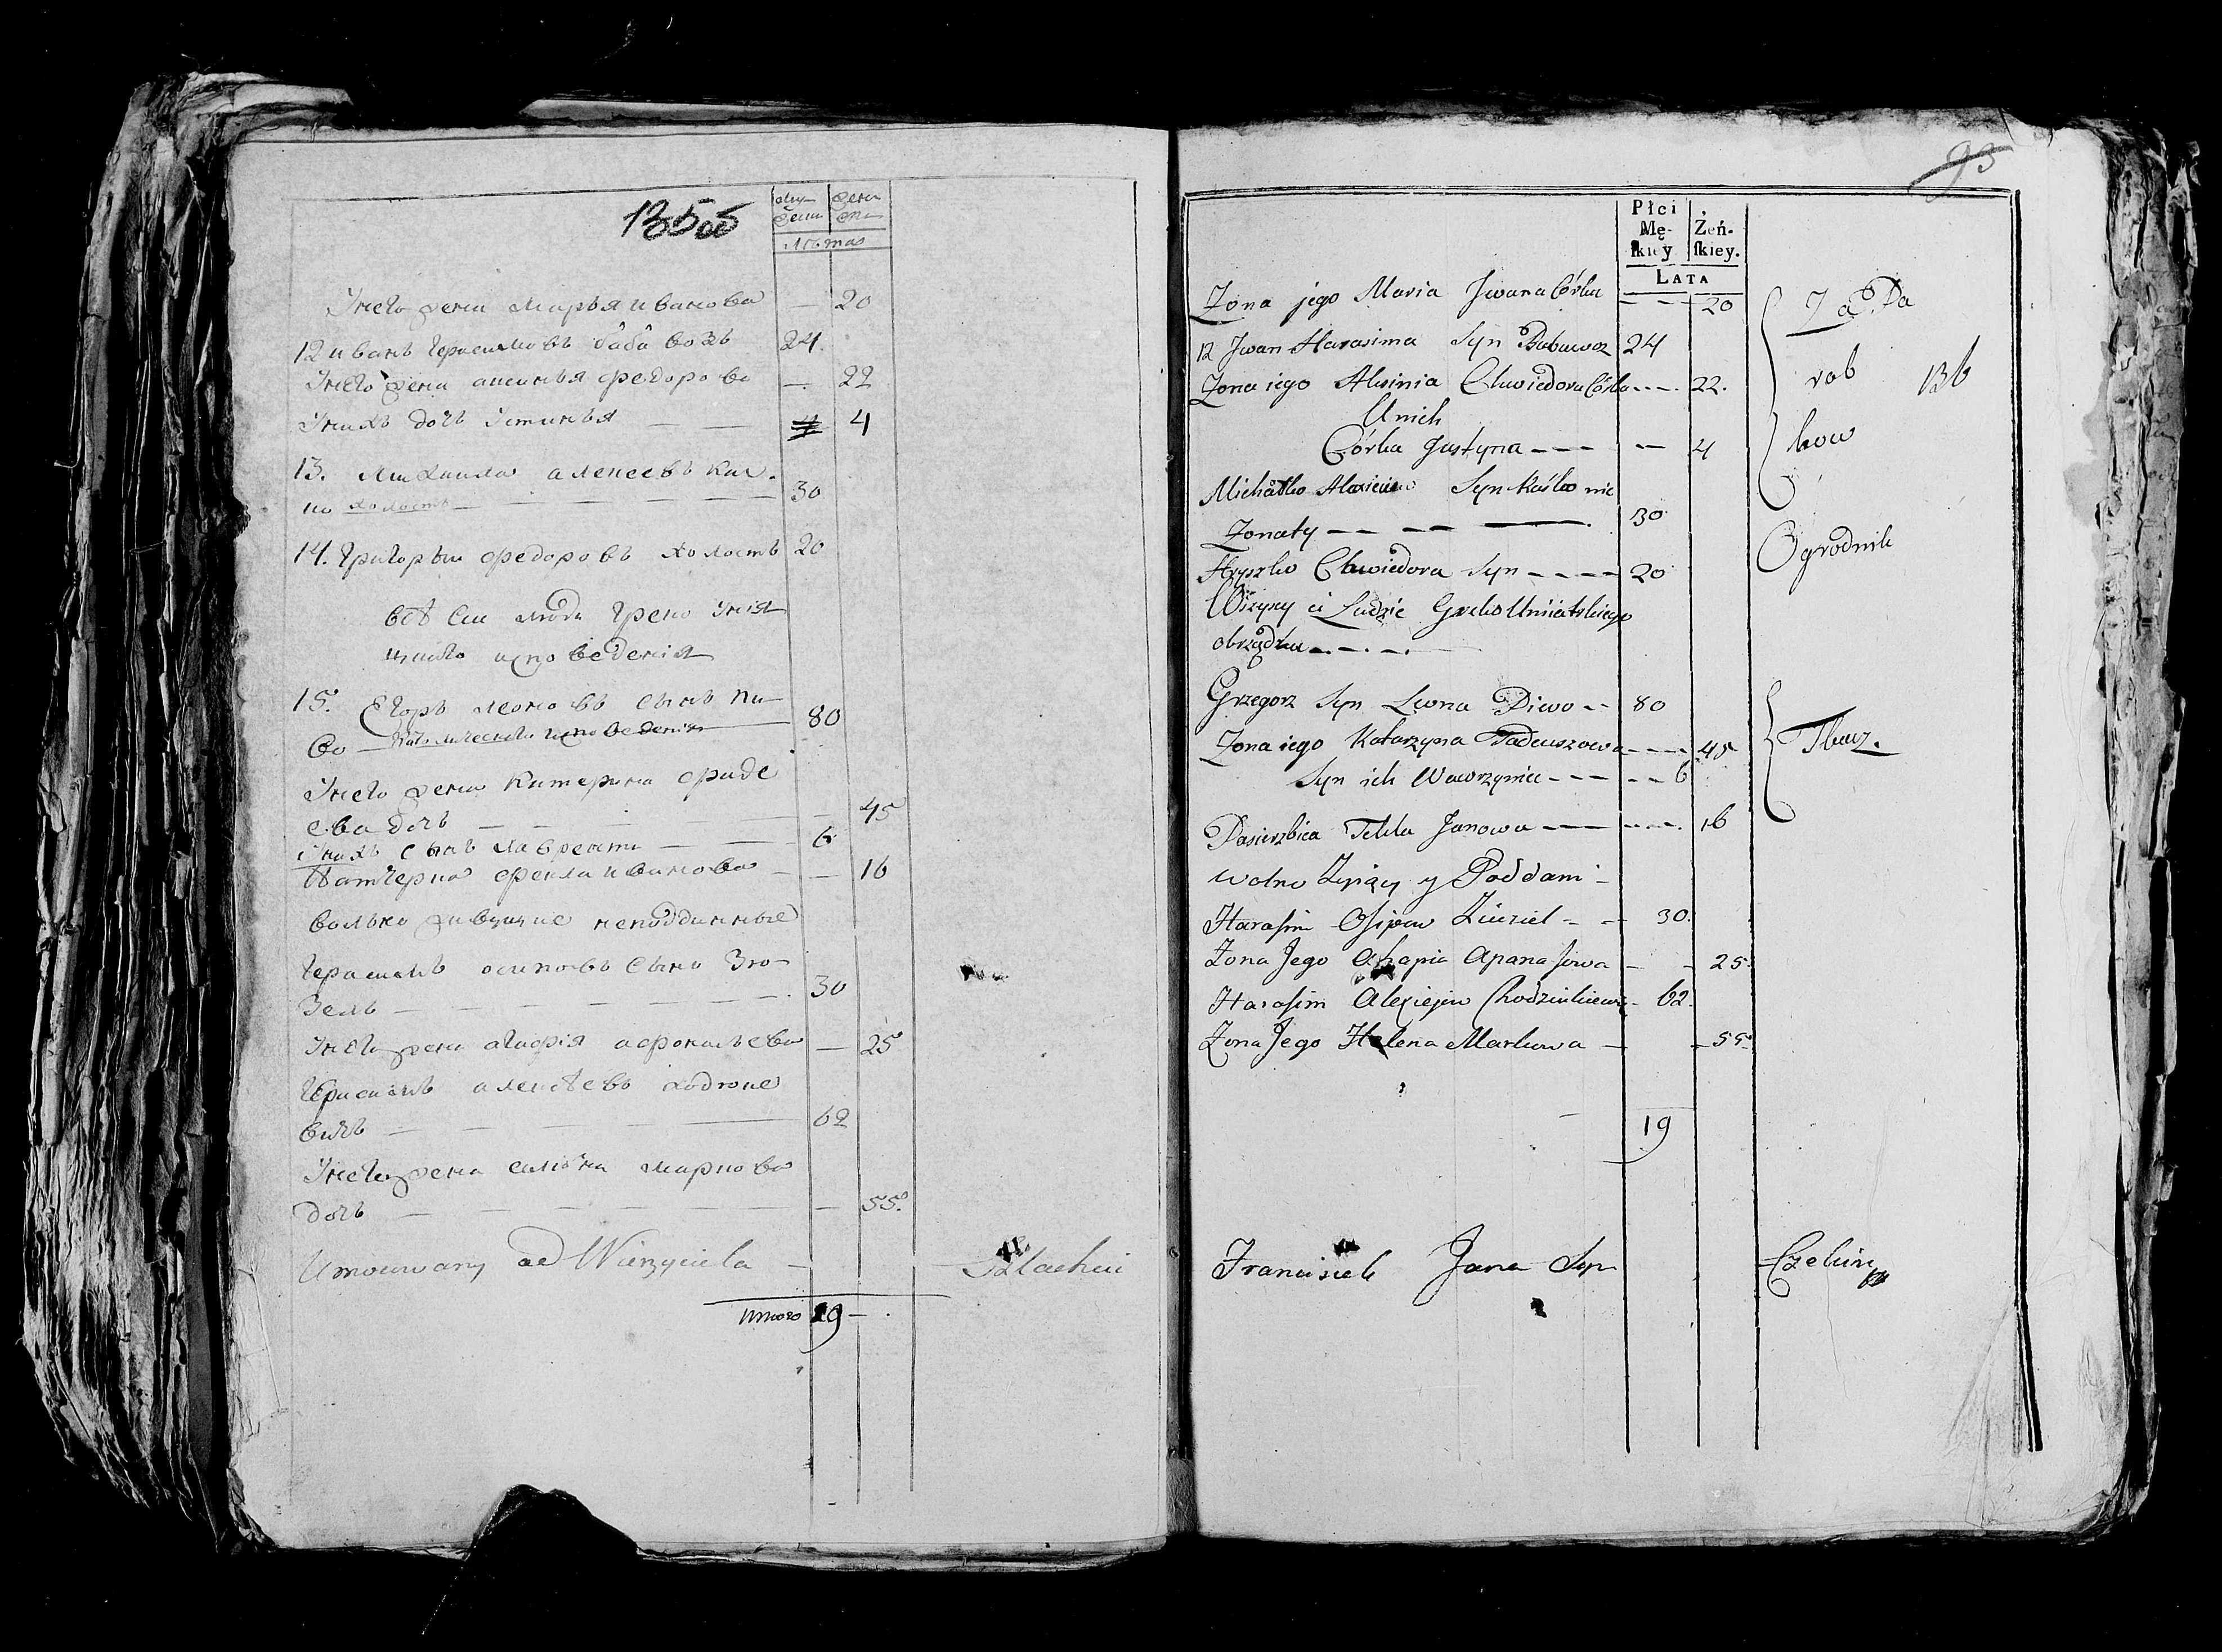 135об
муж
ески
женс
ска
лѣта
Унего жена марья иванова — 20
12 иванъ герасимовъ бабовзъ 24
Унего жена аксинья федорова — 22
Унихъ дочь Устинья — — 4
13. михаила алексеевъ кас
ко холостъ — — — 30
14. григорьи федоровъ холостъ 20
всѣ сии люди греко унiят
цкаго исповеденiя
15. Егоръ леоновъ сынъ Ди
во — католическаго исповеденiя 80
Унего жена катерина фаде
ева дочь — — — 45
Унихъ сынъ лаврентi — — 6
Патчерка фекла иванова — — 16
вольно живущие неподданные
герасимъ осиповъ сынъ Зю
зель — — — — — 30
Унего жена агафiя афонасьева — 25
герасимъ алексѣевъ ходзюке
вичъ — — — — 62
Унего жена елѣна маркова
дочь — — — — — — 55.
Umocowany od Wierzyciela — Szlachcic
итого 19 —
93
Płci
Mę-
ſkiey
Żeń-
ſkiey.
LATA
Zona jego Maria Jwana Córka — — 20
12 Jwan Harasima Syn Babuwoz 24
Zona iego Aksinia Chwiedora Córka — — 22.
Unich
Córka Justyna — — — — 4
Zą Da
rob
kow
136
Michałko Alexieiew Syn Kaśko nie
Zonaty — — — — 30
Hryszko Chwiedora Syn — — — 20
Ogrodnik
Wszyscy ci Ludzie Greko Uniiatskiego
obrządku — . — . — .
Grzegorz Syn Leona Diwo — 80
Zona iego Katarzyna Tadeuszowa — — 45
Syn ich Wawrzyniec — — — — 6
Tkacz.
Pasierzbica Tekla Janowa — — — 16
Wolno Zyiący y Poddani —
Harasim Osipow Ziuziel — — 30.
Zona Jego Ahapia Apanasowa — — 25.
Harasim Alexiejew Chodziukiewicz — 62.
Zona Jego Helena Markowa — — 55
19
Franciszek Jana Syn